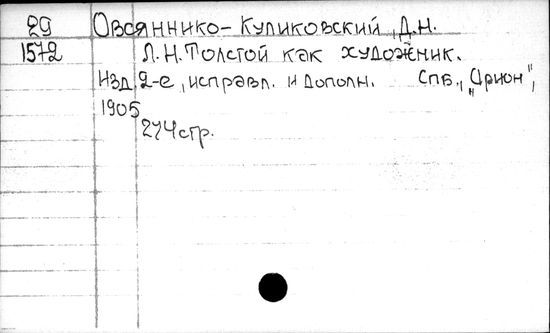 29 Овсяннико-Куликовский, Д.Н.
1572 Л.Н.Толстой как художник.
Изд. 2-е, исправл. и дополн. Спб., "Орион",
1905
274 стр.